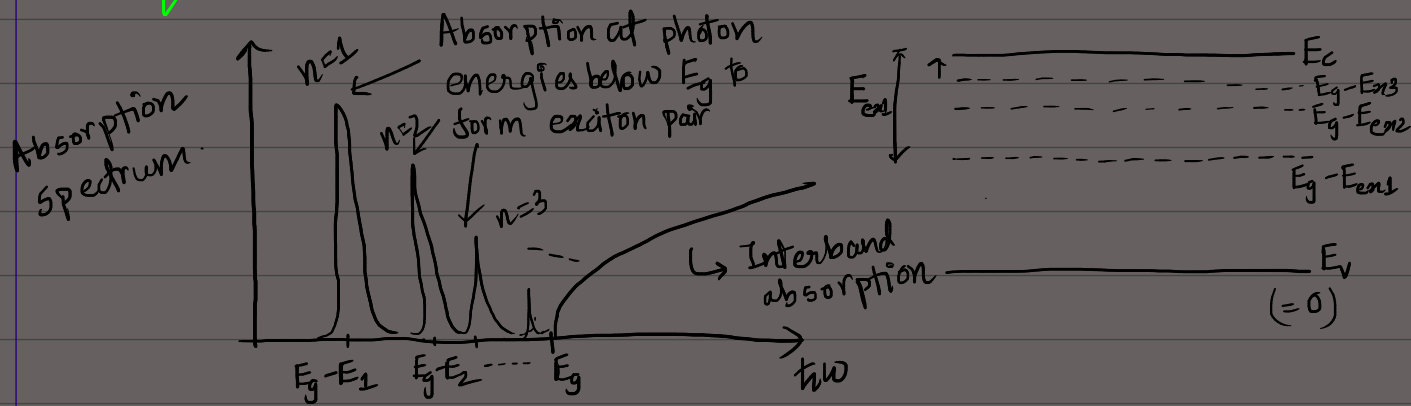 Absorption
spectrum.
n=1
Absorption at photon
energies below Eg to
form exciton pair
n=2
n=3
Interband
absorption
Eg-E1
Eg-E2
Eg
ħω
Eex1
Ec
Eg-Eex3
Eg-Eex2
Eg-Eex1
Ev
(=0)